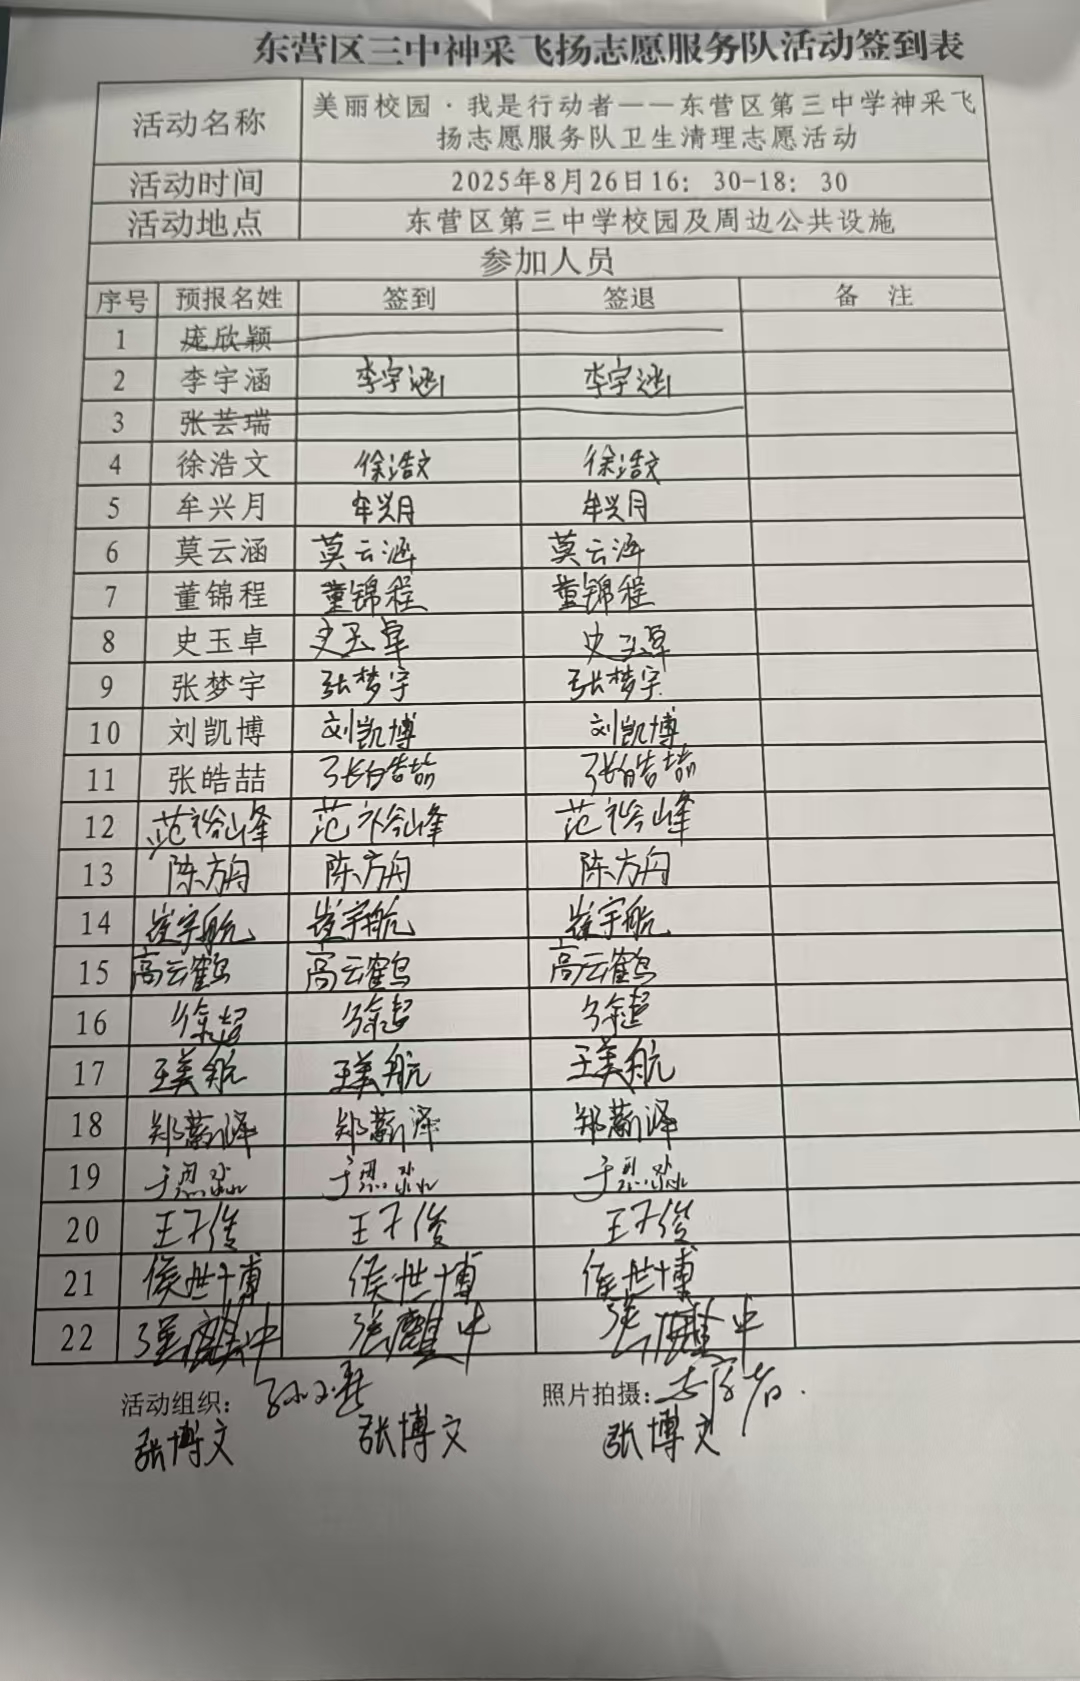 东营区三中神采飞扬志愿服务队活动签到表
活动名称 美丽校园·我是行动者——东营区第三中学神采飞
扬志愿服务队卫生清理志愿活动
活动时间 2025年8月26日16：30-18：30
活动地点 东营区第三中学校园及周边公共设施
参加人员
序号 预报名姓 签到 签退 备 注
1 庞欣颖
2 李宇涵 李宇涵 李宇涵
3 张芸瑞
4 徐浩文 徐浩文 徐浩文
5 牟兴月 牟兴月 牟兴月
6 莫云涵 莫云涵 莫云涵
7 董锦程 董锦程 董锦程
8 史玉卓 史玉卓 史玉卓
9 张梦宇 张梦宇 张梦宇
10 刘凯博 刘凯博 刘凯博
11 张皓喆 张皓喆 张皓喆
12 范裕峰 范裕峰 范裕峰
13 陈方舟 陈方舟 陈方舟
14 崔宇航 崔宇航 崔宇航
15 高云鹤 高云鹤 高云鹤
16 徐超 徐超 徐超
17 王美航 王美航 王美航
18 郑蕲泽 郑蕲泽 郑蕲泽
19 于
20 王子俊 王子俊 王子俊
21 侯世博 侯世博 侯世博
22 张 中 张 中 张 中
活动组织： 照片拍摄：
张博文 张博文 张博文